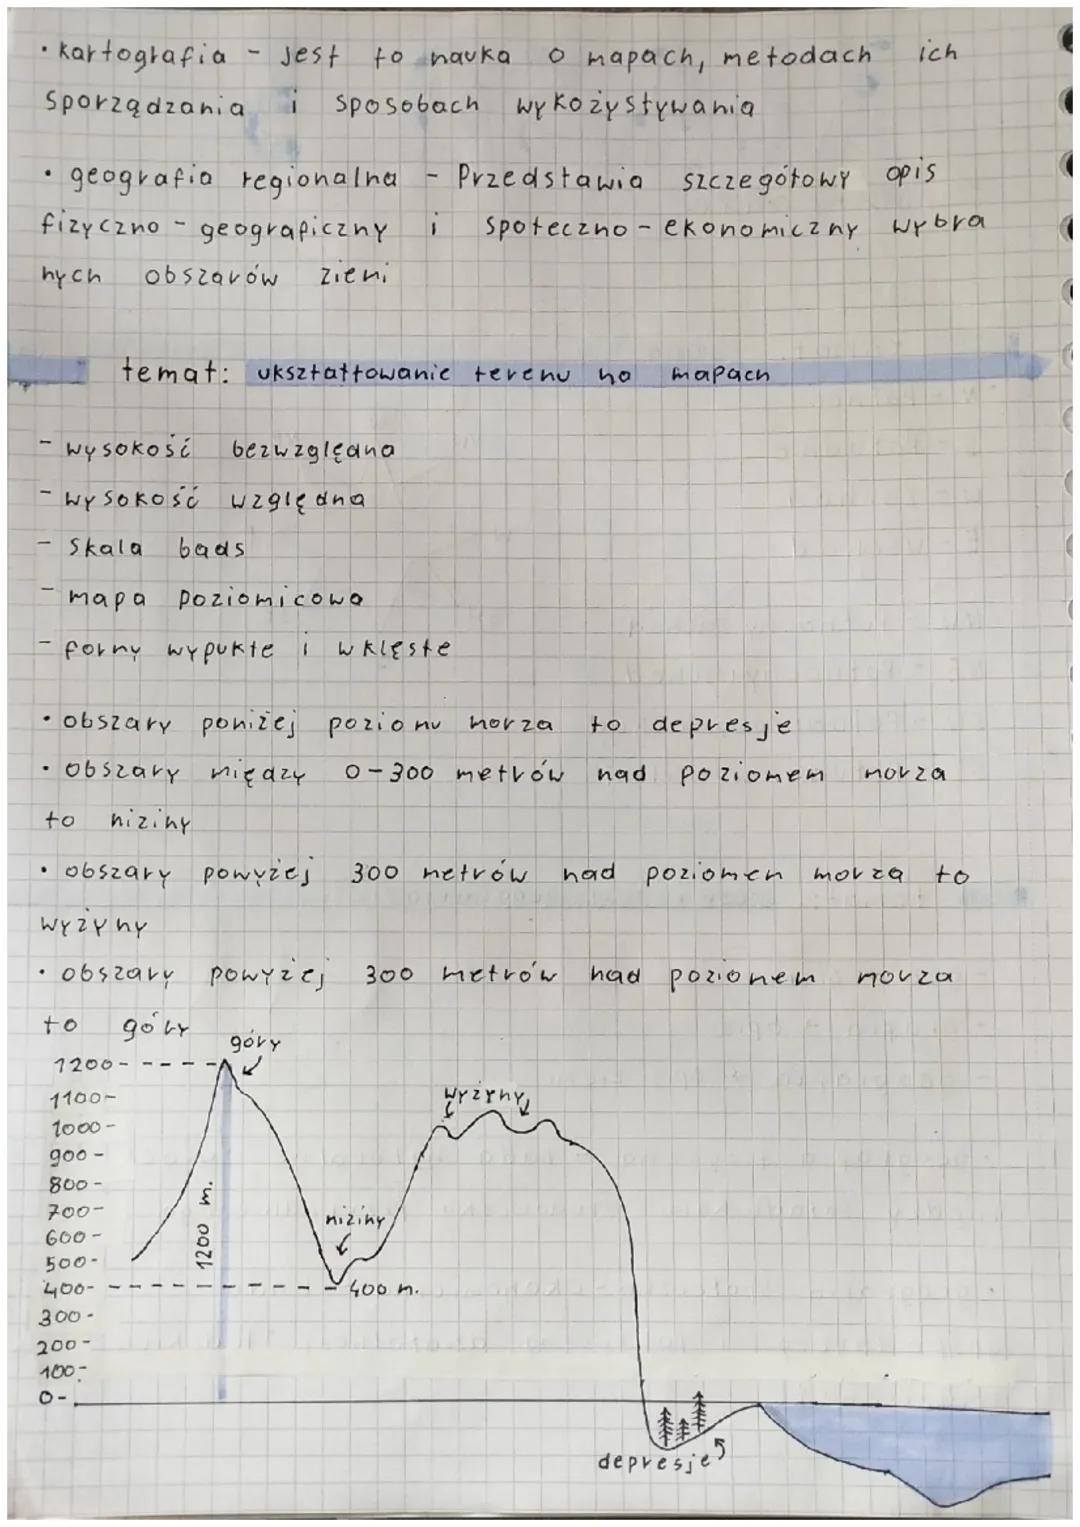 • kartografia - jest to nauka o mapach, metodach ich
sporządzania i sposobach wykożystywania
• geografia regionalna - Przedstawia szczegółowy opis
fizyczno - geograficzny i społeczno - ekonomiczny wybra
nych obszarów ziemi
temat: ukształtowanie terenu na mapach
- wysokość bezwzględna
- wysokość względna
- skala bads
- mapa poziomicowa
- formy wypukłe i wklęsłe
• obszary poniżej poziomu morza to depresje
• obszary między 0-300 metrów nad poziomem morza
to niziny
• obszary powyżej 300 metrów nad poziomem morza to
wyżyny
• obszary powyżej 300 metrów nad poziomem morza
to góry
góry
1200-
1100-
wyżyny
1000-
900-
800-
700-
niziny
600-
1200 m.
500-
400-
400 m.
300-
200-
100-
0-
depresje